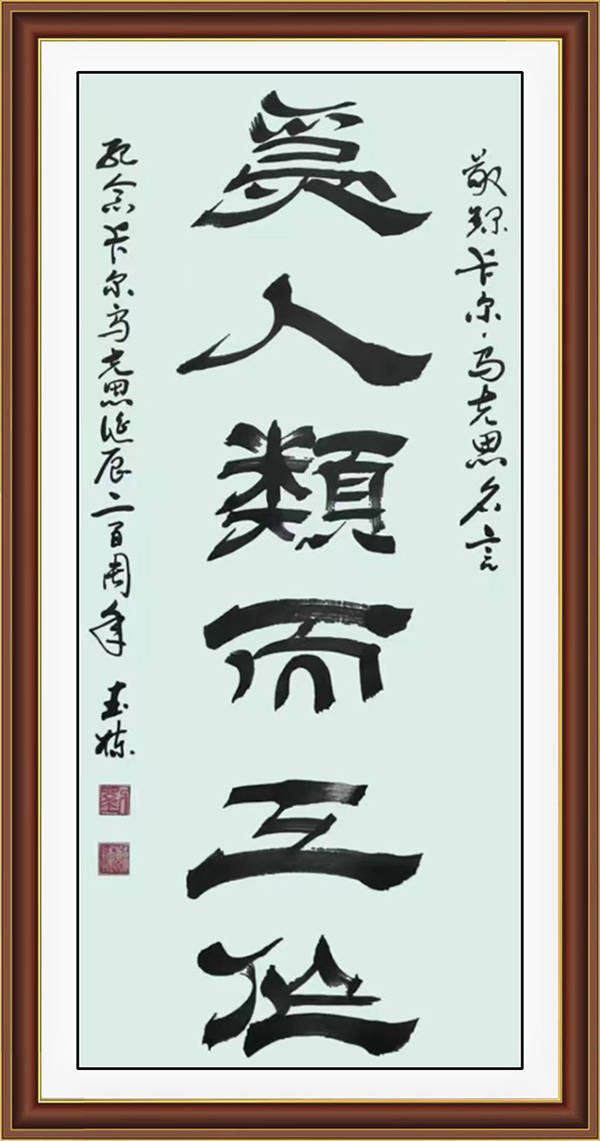 敬録卡尔·马克思名言
爲人類而工作
纪念卡尔马克思诞辰二百周年